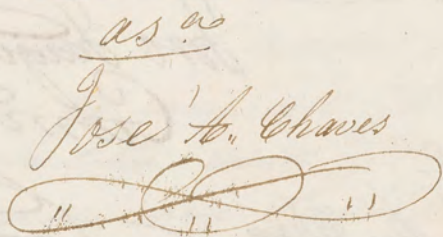 as a
José A. Chaves